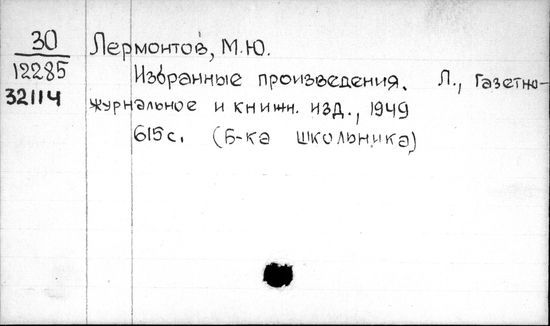 30 Лермонтов, М.Ю.
12285 Избранные произведения. Л., Газетно-
32114 журнальное и книжн. изд., 1949
615 с. (Б-ка школьника)